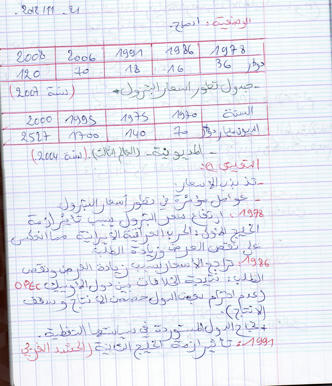 2012/11/21
الوضعية: أنصح.
2008 2006 1991 1986 1978
120 70 18 16 36 دولار
- جدول تطور أسعار البترول - (سنة 2007)
2000 1995 1975 1970 السنة
2527 1700 140 70 المديونية مليار دولار
- المديونية - (العالم الثالث). (سنة 2004)
- تذبذب الأسعار
- عوامل مؤثرة في تطور أسعار البترول
1978: ارتفاع سعر البترول بسبب تأثير أزمة
الخليج الأولى: الحرب العراقية الإيرانية مما انعكس
على نقص العرض وزيادة الطلب
1986: تراجع الأسعار بسبب زيادة العرض ونقص
الطلب: نتيجة الخلافات بين دول الأوبيك OPEC
(عدم احترام بعض الدول حصص الإنتاج وسقف
الإنتاج).
+ نجاح الدول المستوردة في سياستها النفطية.
1991: تأثير أزمة الخليج الثانية والحشد الغربي